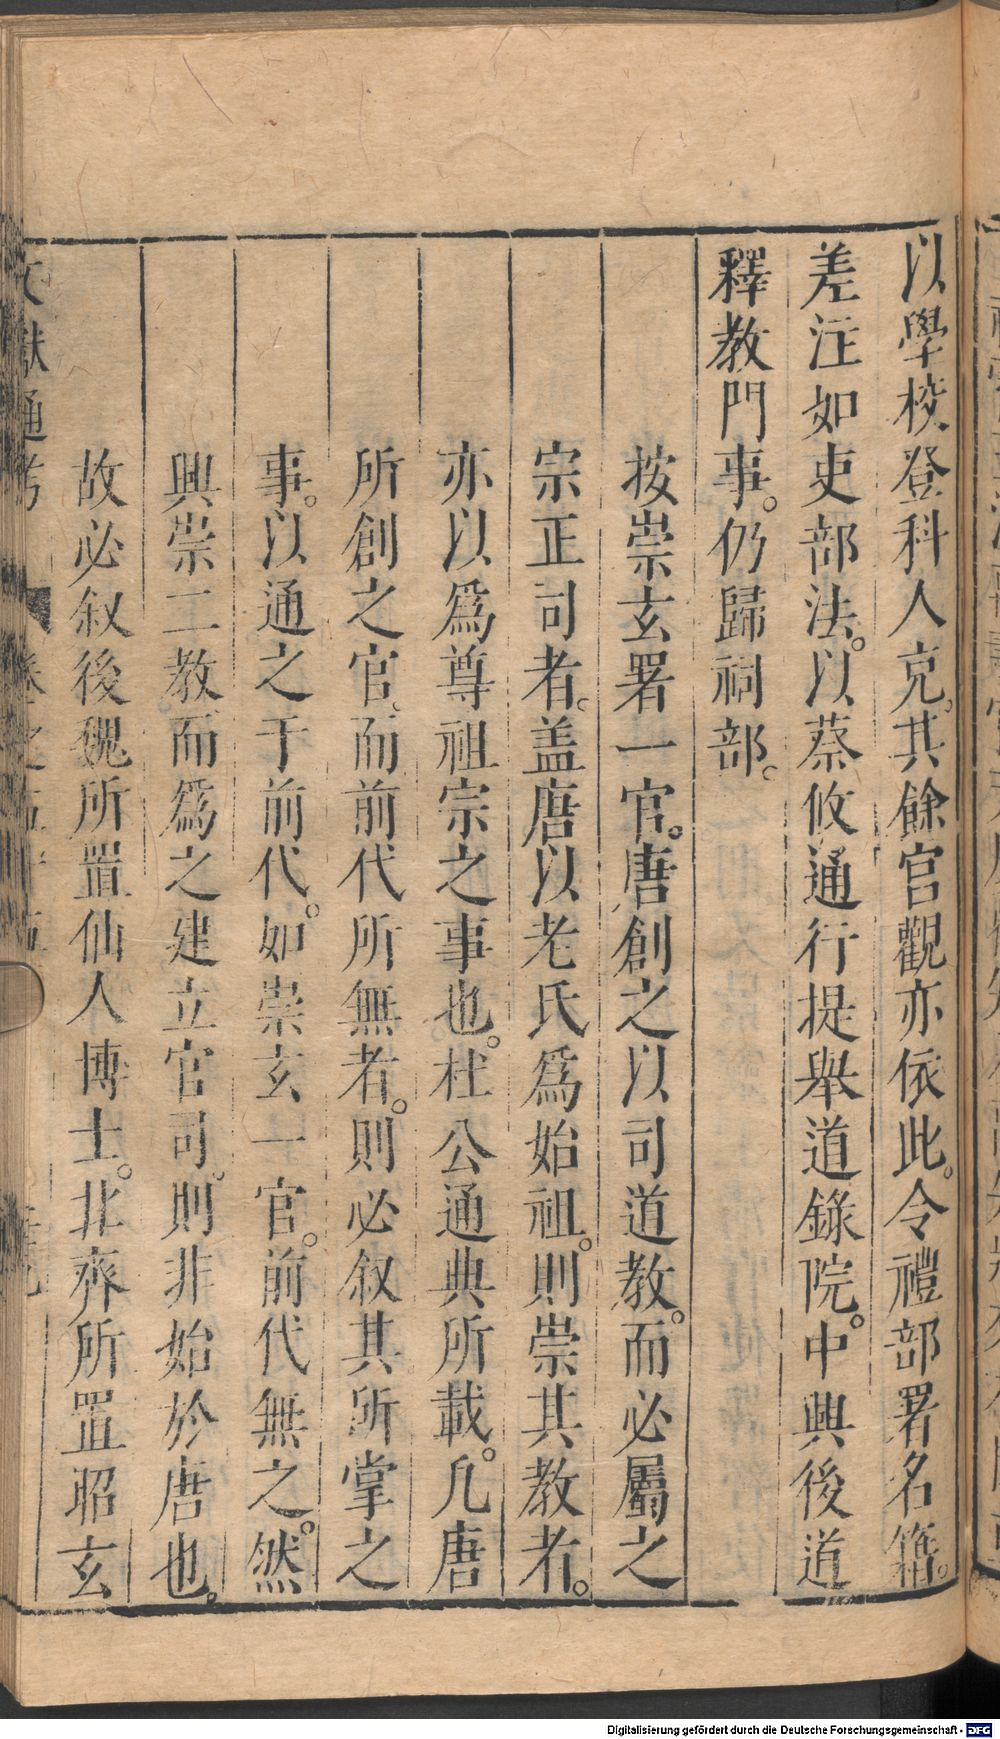 以學校登科人克其餘官觀亦依此。令禮部署名籍。
差注如吏部法。以蔡攸通行提舉道錄院。中興後道
釋教門事。仍歸祠部。
按崇玄署一官。唐創之以司道教。而必屬之
宗正司者。盖唐以老氏爲始祖。則崇其教者。
亦以爲尊祖宗之事也。杜公通典所載。凡唐
所創之官。而前代所無者。則必叙其所掌之
事。以通之于前代。如崇玄一官。前代無之。然
興崇二教。而爲之建立官司。則非始於唐也。
故必叙後魏所置仙人博士。北齊所置昭玄
文獻通考 卷之五十五
Digitalisierung gefördert durch die Deutsche Forschungsgemeinschaft - DFG